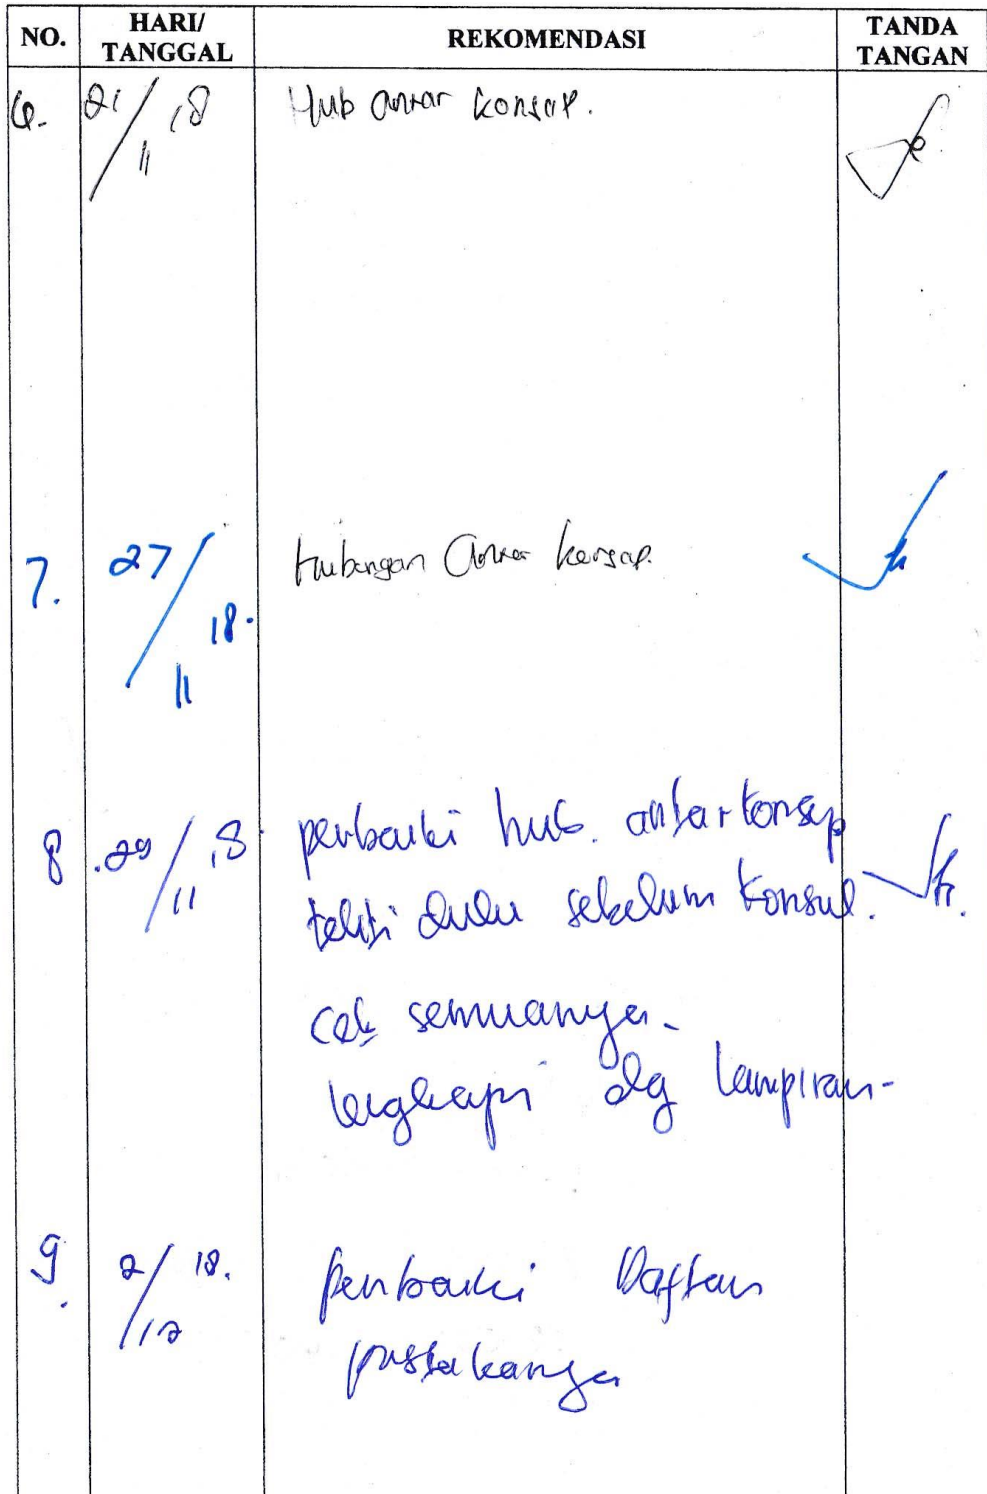 NO. HARI/ TANGGAL REKOMENDASI TANDA TANGAN
6. 21/11 18 Hub antar konsep.
7. 27/11 18. Hubungan antar konsep.
8. 29/11 18 perbaiki hub. antar konsep
teliti dulu sebelum konsul.
cek semuanya.
lengkapi dg lampiran.
9. 2/12 18. perbaiki Daftar
pustakanya